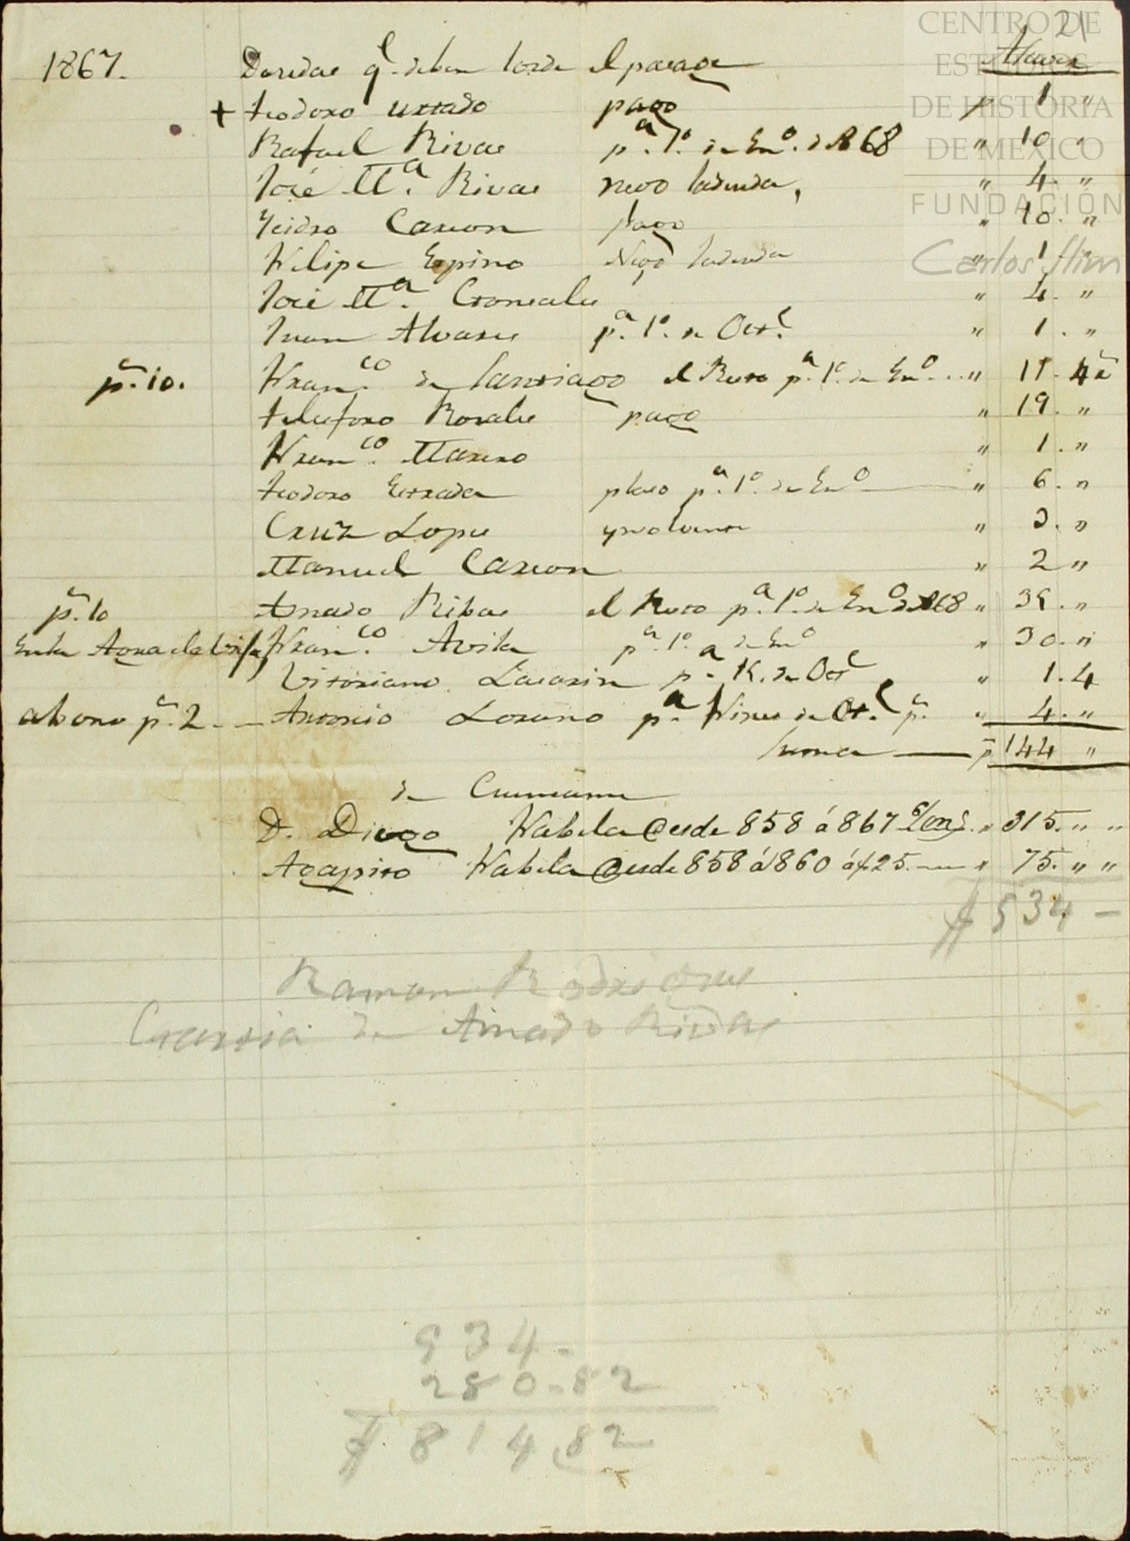 21
CENTRO DE
ESTUDIOS
DE HISTORIA
DE MEXICO
FUNDACIÓN
Carlos Slim
1867. Deudas q.e deben
+ Teodoro urtado pago " 1 "
Rafael Rivas p.a 1.o de En.o de 868 " 10 "
José M.a Rivas " 4 "
Ysidro Careon pago " 10. "
Felipe Espino " 1 "
José M.a Gonsales " 4. "
Juan Alvares p.a 1.o de Oct.e " 1. "
p.s 10. Fran.co de Santiago el Resto p.a 1.o de En.o " 11. 4
Telesforo Rosales pago " 19. "
Fran.co Marero " 1. "
Teodoro Estrada plaso p.a 1.o de En.o " 6. "
Cruz Lopes ynsolvente " 3. "
Manuel Careon " 2 "
p.s 10 Amado Ribas el Resto p.a 1.o de En.o de 868 " "
Fran.co Avila p.a 1.o de En.o " 30. "
Vitoriano p.a de Oct.e " 1. 4
abono p.s 2. Antonio Losano p.a Fines de Oct.e " 4. "
Suma p 144 "
de
D. Diego Fabila desde 858 á 867 " 315. " "
Agapito Fabila desde 858 á 860 á 25. " 75. " "
$ 534 —
Ramon Rodrigues
Garsia de Amado Rivas
534 -
280 - 82
$ 814,82